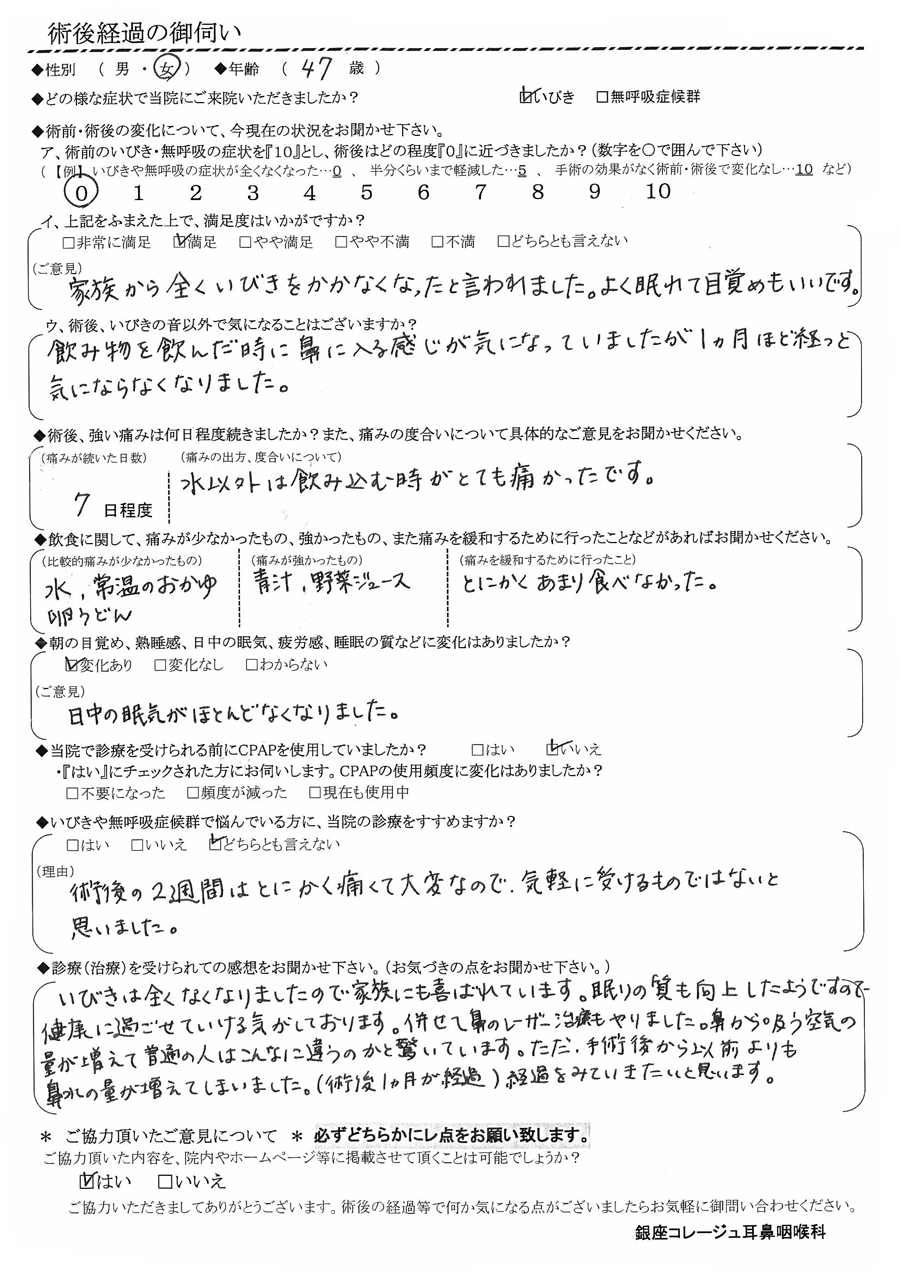 術後経過の御伺い
◆性別 ( 男 ・ 女 ) ◆年齢 ( 47 歳 )
◆どの様な症状で当院にご来院いただきましたか? ☑いびき □無呼吸症候群
◆術前・術後の変化について、今現在の状況をお聞かせ下さい。
ア、術前のいびき・無呼吸の症状を『10』とし、術後はどの程度『0』に近づきましたか?(数字を〇で囲んで下さい)
(【例】いびきや無呼吸の症状が全くなくなった…0 、 半分くらいまで軽減した…5 、 手術の効果がなく術前・術後で変化なし…10 など)
0 1 2 3 4 5 6 7 8 9 10
イ、上記をふまえた上で、満足度はいかがですか?
□非常に満足 ☑満足 □やや満足 □やや不満 □不満 □どちらとも言えない
(ご意見)
家族から全くいびきをかかなくなったと言われました。よく眠れて目覚めもいいです。
ウ、術後、いびきの音以外で気になることはございますか?
飲み物を飲んだ時に鼻に入る感じが気になっていましたが1ヵ月ほど経っと
気にならなくなりました。
◆術後、強い痛みは何日程度続きましたか?また、痛みの度合いについて具体的なご意見をお聞かせください。
(痛みが続いた日数) (痛みの出方、度合いについて)
水以外は飲み込む時がとても痛かったです。
7 日程度
◆飲食に関して、痛みが少なかったもの、強かったもの、また痛みを緩和するために行ったことなどがあればお聞かせください。
(比較的痛みが少なかったもの) (痛みが強かったもの) (痛みを緩和するために行ったこと)
水,常温のおかゆ 青汁,野菜ジュース とにかくあまり食べなかった。
卵うどん
◆朝の目覚め、熟睡感、日中の眠気、疲労感、睡眠の質などに変化はありましたか?
☑変化あり □変化なし □わからない
(ご意見)
日中の眠気がほとんどなくなりました。
◆当院で診療を受けられる前にCPAPを使用していましたか? □はい ☑いいえ
・『はい』にチェックされた方にお伺いします。CPAPの使用頻度に変化はありましたか?
□不要になった □頻度が減った □現在も使用中
◆いびきや無呼吸症候群で悩んでいる方に、当院の診療をすすめますか?
□はい □いいえ ☑どちらとも言えない
(理由)
術後の2週間はとにかく痛くて大変なので、気軽に受けるものではないと
思いました。
◆診療(治療)を受けられての感想をお聞かせ下さい。(お気づきの点をお聞かせ下さい。)
いびきは全くなくなりましたので家族にも喜ばれています。眠りの質も向上したようですので
健康に過ごせていける気がしております。併せて鼻のレーザー治療もやりました。鼻から吸う空気の
量が増えて普通の人はこんなに違うのかと驚いています。ただ、手術後から以前よりも
鼻水の量が増えてしまいました。(術後1ヵ月が経過)経過をみていきたいと思います。
* ご協力頂いたご意見について * 必ずどちらかにレ点をお願い致します。
ご協力頂いた内容を、院内やホームページ等に掲載させて頂くことは可能でしょうか?
☑はい □いいえ
ご協力いただきましてありがとうございます。術後の経過等で何か気になる点がございましたらお気軽に御問い合わせください。
銀座コレージュ耳鼻咽喉科